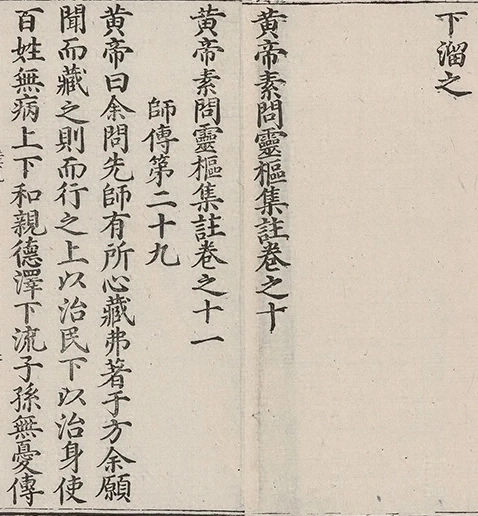 下溜之
黄帝素問靈樞集註卷之十
黄帝素問靈樞集註卷之十一
師傳第二十九
黄帝曰余聞先師有所心藏弗著于方余願
聞而藏之則而行之上以治民下以治身使
百姓無病上下和親德澤下流子孫無憂傳